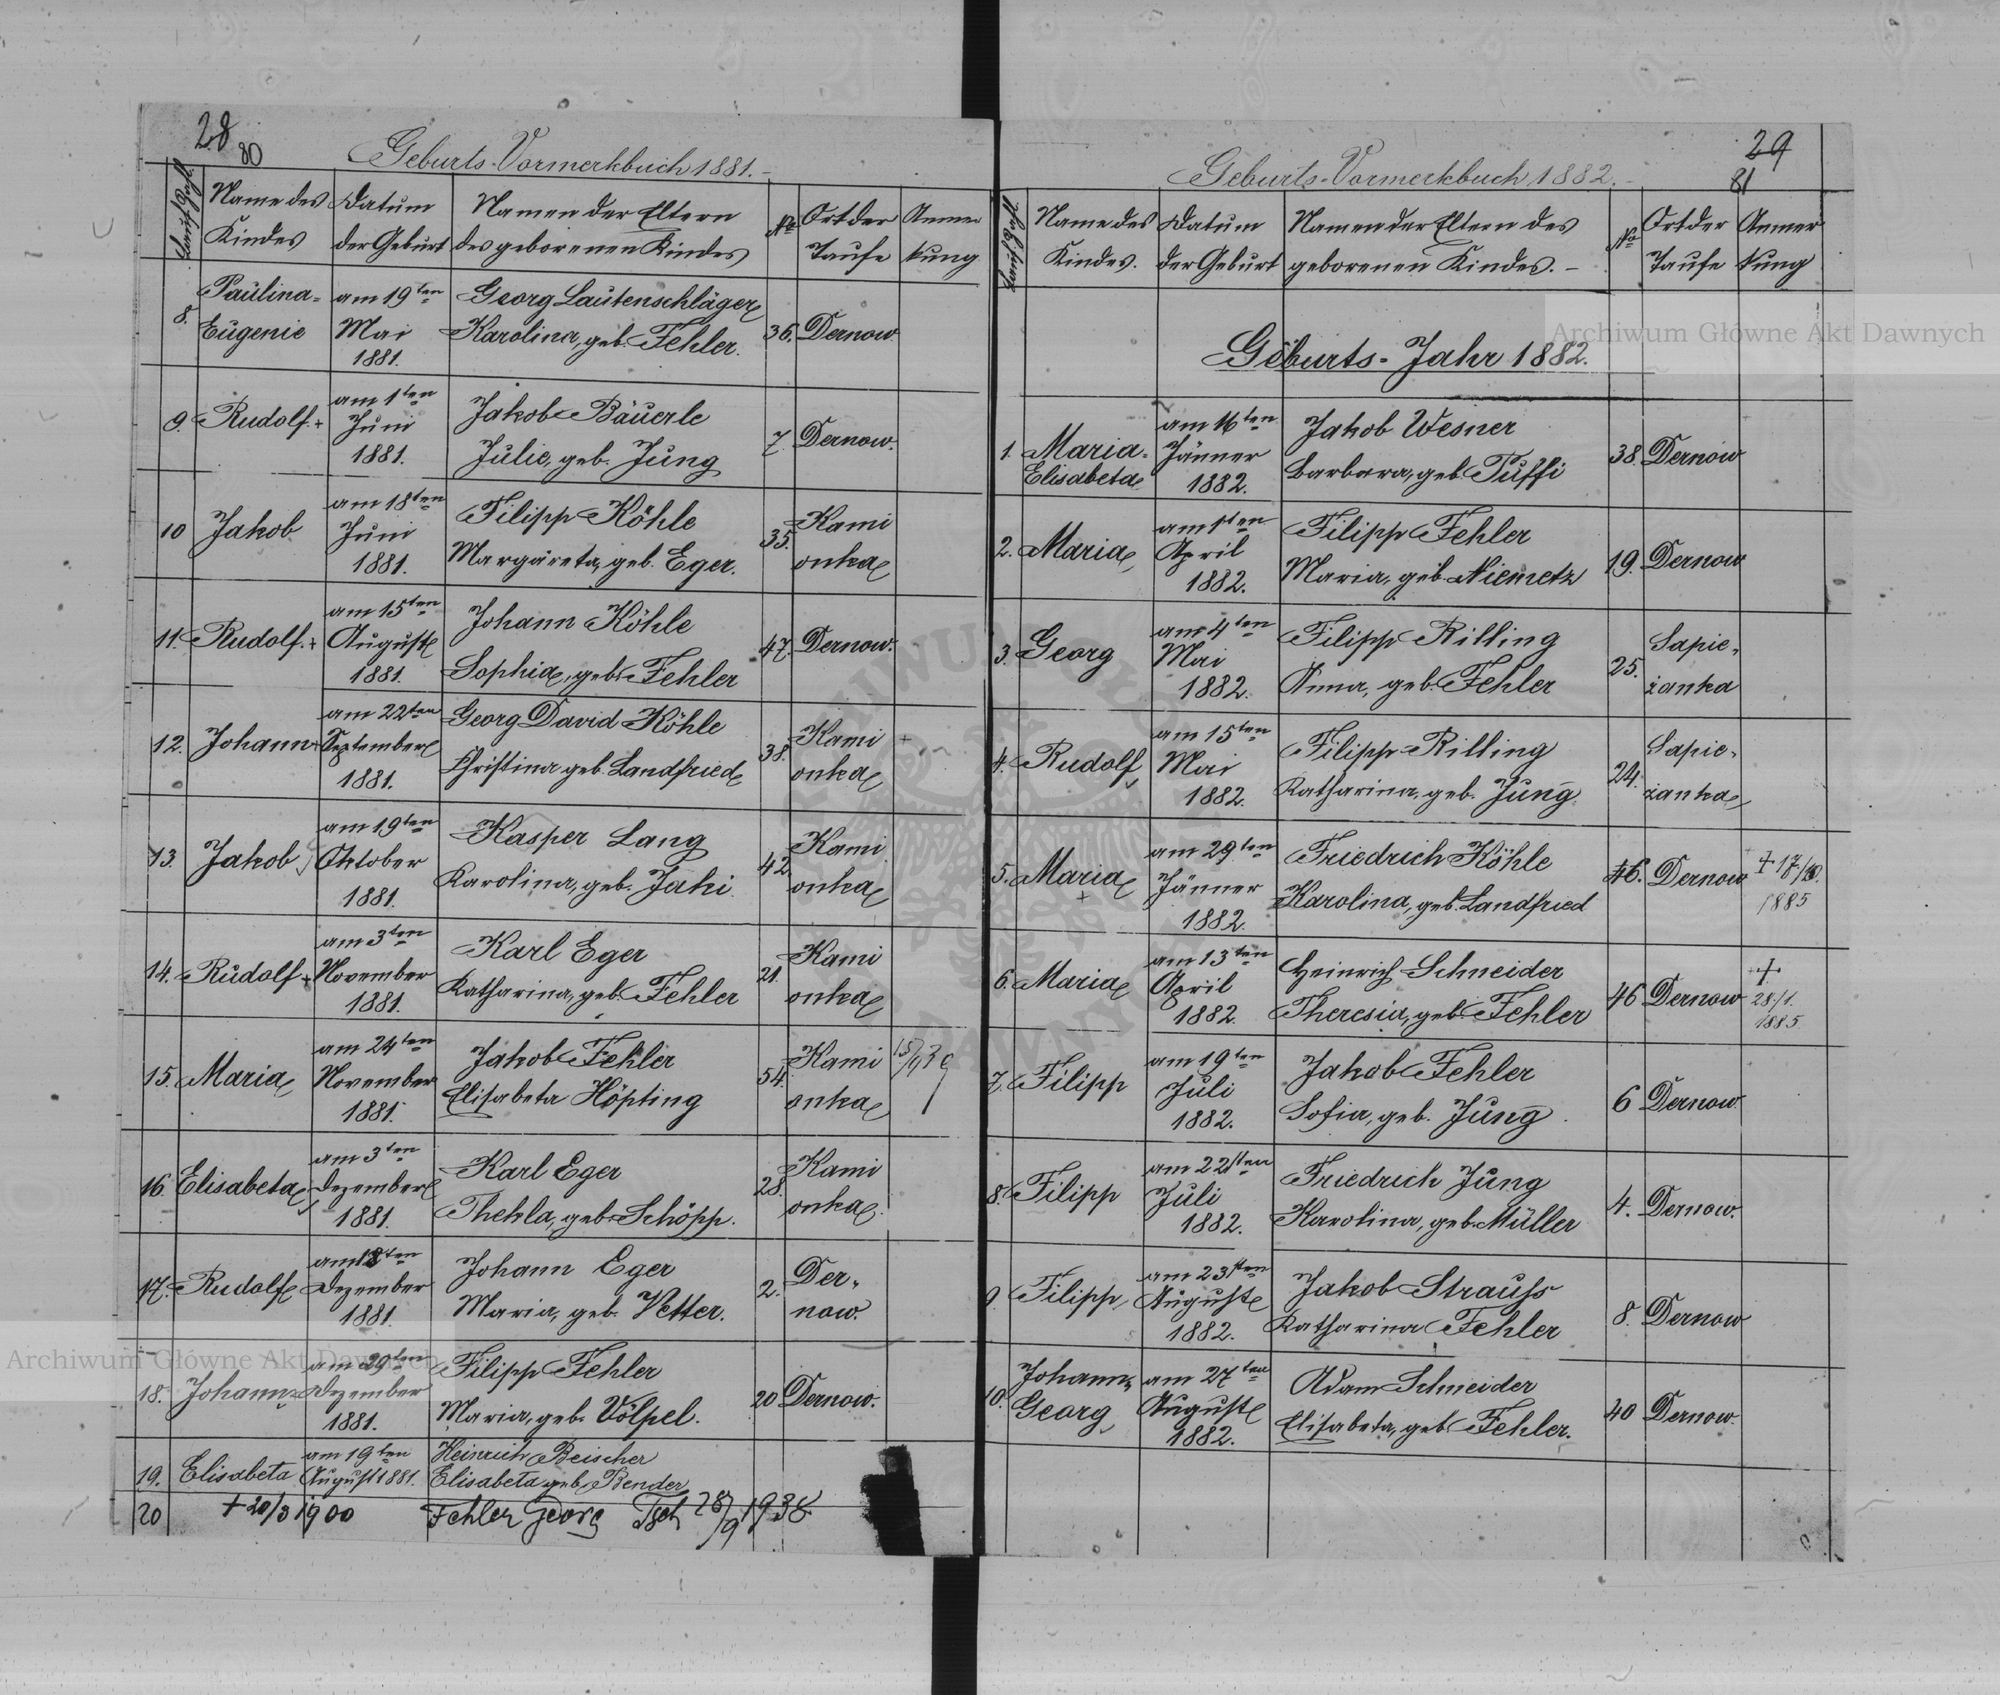 28
80
Geburts-Vormerkbuch 1881.
Name des Kindes
Datum der Geburt
Namen der Eltern des geborenen Kindes
No
Ort der Taufe
Anmerkung
8. Paulina-Eugenie am 19ten Mai 1881. Georg Lautenschläger Karolina, geb. Fehler. 36. Dernow.
9. Rudolf + am 1ten Juni 1881. Jakob Bäuerle Julie, geb. Jung 7. Dernow.
10 Jakob am 18ten Juni 1881. Filipp Köhle Margareta, geb. Eger. 35. Kamionka
11. Rudolf. + am 15ten August 1881. Johann Köhle Sophia, geb. Fehler 47. Dernow.
12. Johann + am 22ten September 1881. Georg David Köhle Christina geb. Landfried 38. Kamionka +
13. Jakob am 19ten Oktober 1881. Kasper Lang Karolina, geb. Jaki 42. Kamionka
14. Rudolf + am 3ten November 1881. Karl Eger Katharina, geb. Fehler 21. Kamionka
15. Maria am 24ten November 1881. Jakob Fehler Elisabeta Höpting 54. Kamionka
16. Elisabeta am 3ten Dezember 1881. Karl Eger Thekla, geb. Schöpp. 28. Kamionka.
17. Rudolf am 18ten Dezember 1881. Johann Eger Maria, geb. Vetter. 2. Dernow.
18. Johann am 29ten Dezember 1881. Filipp Fehler Maria, geb. Völpel. 20 Dernow.
19. Elisabeta am 19ten August 1881. Heinrich Reischer Elisabeta geb. Bender
20 + 20/3 1900 Fehler Georg 28/9 1938
29
81
Geburts-Vormerkbuch 1882.
Name des Kindes.
Datum der Geburt
Namen der Eltern des geborenen Kindes.
No
Ort der Taufe
Anmerkung
Geburts-Jahr 1882.
1. Maria-Elisabeta am 16ten Jänner 1882. Jakob Wesner Barbara, geb. Tuffi 38. Dernow
2. Maria am 1ten April 1882. Filipp Fehler Maria, geb. Niemetz 19. Dernow
3. Georg am 4ten Mai 1882. Filipp Rilling Anna, geb. Fehler 25. Sapieżanka
4. Rudolf am 15ten Mai 1882. Filipp Rilling Katharina, geb. Jung 24. Sapieżanka
5. Maria + am 29ten Jänner 1882. Friedrich Köhle Karolina, geb. Landfried 46. Dernow + 1885
6. Maria am 13ten April 1882. Heinrich Schneider Theresia, geb. Fehler 46 Dernow + 28/1. 1885.
7. Filipp am 19ten Juli 1882. Jakob Fehler Sofia, geb. Jung 6 Dernow.
8. Filipp am 22ten Juli 1882. Friedrich Jung Karolina, geb. Müller 4. Dernow.
9. Filipp am 23ten August 1882. Jakob Strauss Katharina Fehler 8. Dernow
10. Johann Georg am 27ten August 1882. Adam Schneider Elisabeta, geb. Fehler. 40 Dernow.
Archiwum Główne Akt Dawnych
Archiwum Główne Akt Dawnych